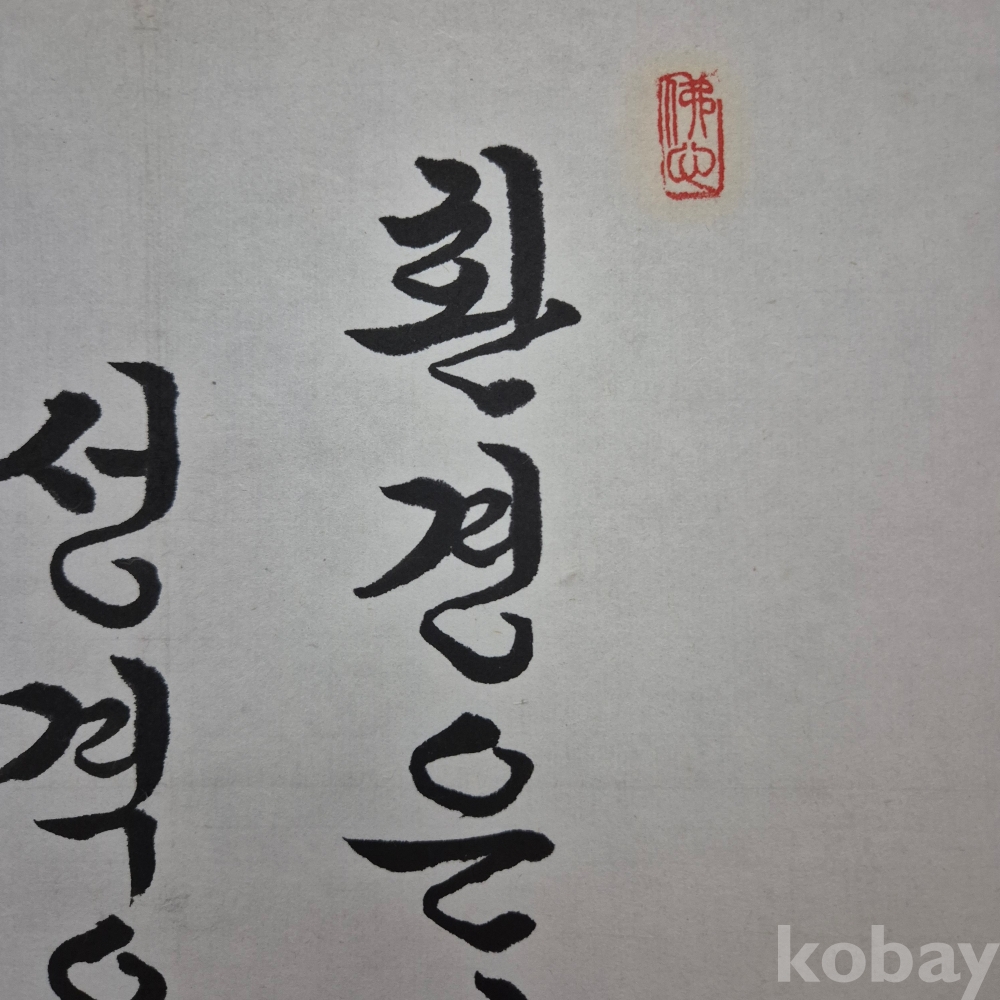 佛心
환경은
성격
kobay